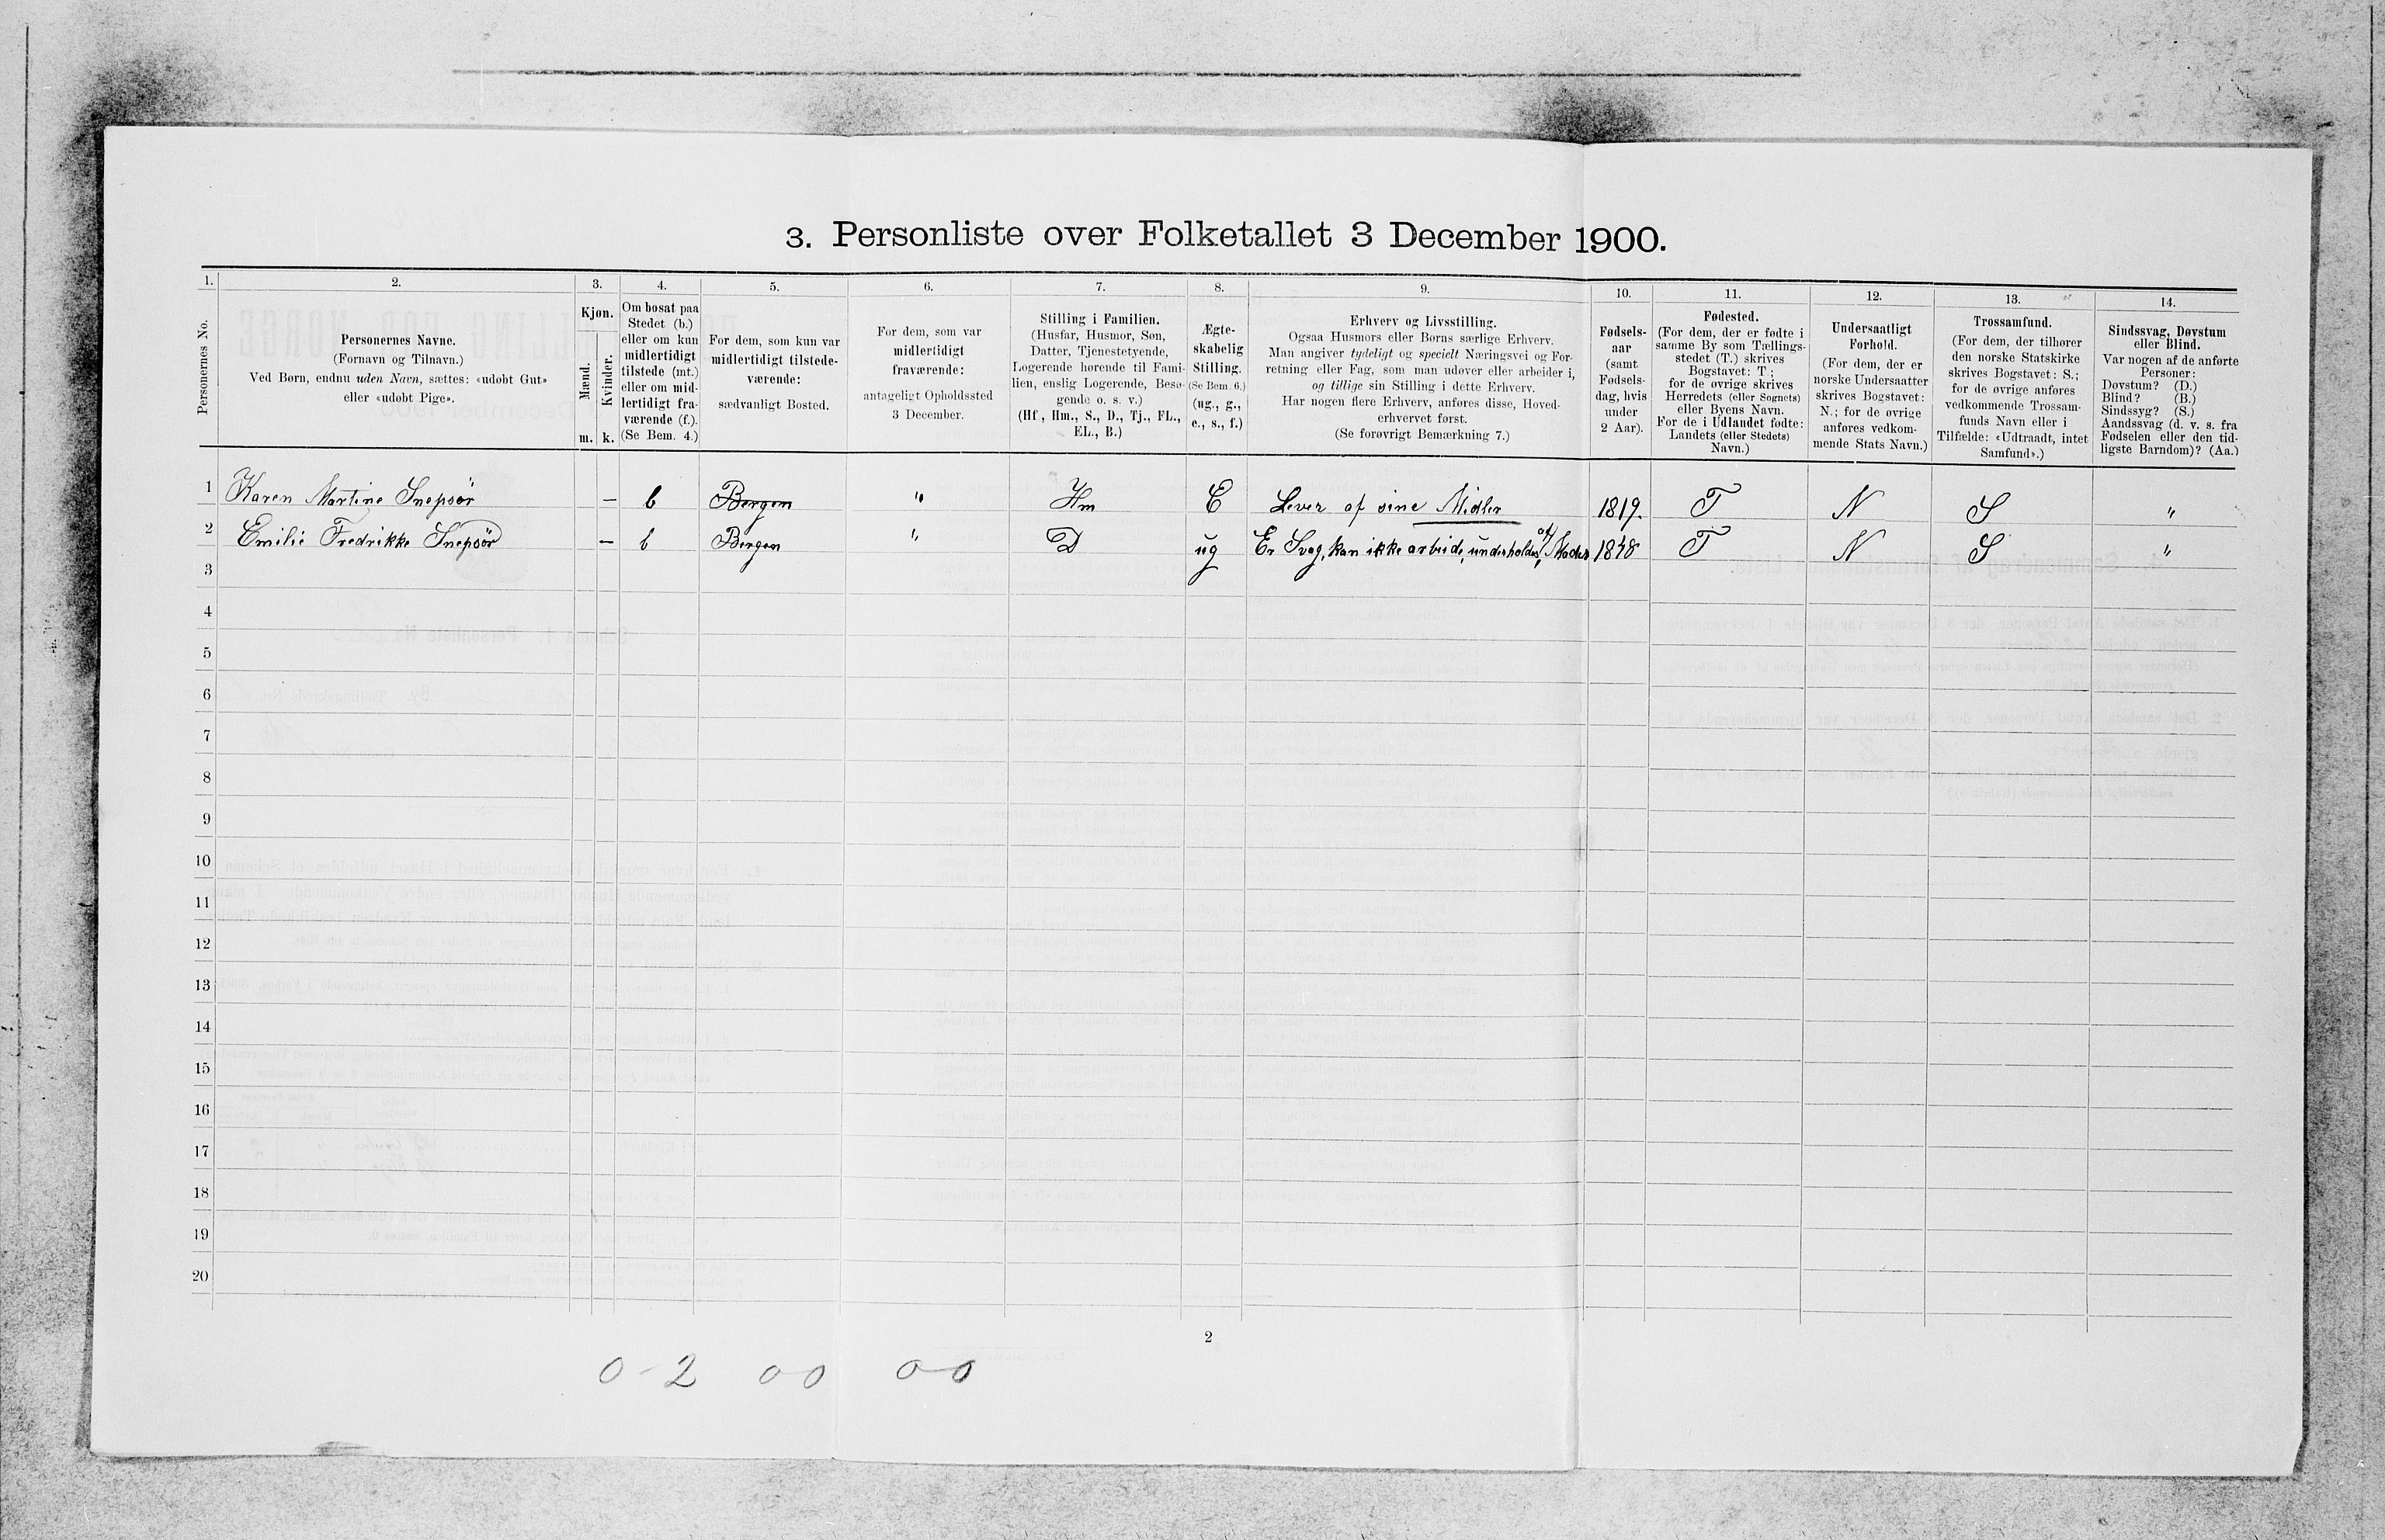 3. Personliste over Folketallet 3 December 1900.
1. 2. 3. 4. 5. 6. 7. 8. 9. 10. 11. 12. 13. 14.
Personernes No.
Personernes Navne.
(Fornavn og Tilnavn.)
Ved Børn, endnu uden Navn, sættes: «udøbt Gut»
eller «udøbt Pige».
Kjøn.
Mænd.
Kvinder.
m. k.
Om bosat paa
Stedet (b.)
eller om kun
midlertidigt
tilstede (mt.)
eller om mid-
lertidigt fra-
værende (f.).
(Se Bem. 4.)
For dem, som kun var
midlertidigt tilstede-
værende:
sædvanligt Bosted.
For dem, som var
midlertidigt
fraværende:
antageligt Opholdssted
3 December.
Stilling i Familien.
(Husfar, Husmor, Søn,
Datter, Tjenestetyende,
Logerende hørende til Fami-
lien, enslig Logerende, Besø-
gende o. s. v.)
(Hf, Hm., S., D., Tj., FL.,
EL., B.)
Ægte-
skabelig
Stilling.
(Se Bem. 6.)
(ug., g.,
e., s., f.)
Erhverv og Livsstilling.
Ogsaa Husmors eller Børns særlige Erhverv.
Man angiver tydeligt og specielt Næringsvei og For-
retning eller Fag, som man udøver eller arbeider i,
og tillige sin Stilling i dette Erhverv.
Har nogen flere Erhverv, anføres disse, Hoved-
erhvervet først.
(Se forøvrigt Bemærkning 7.)
Fødsels-
aar
(samt
Fødsels-
dag, hvis
under
2 Aar).
Fødested.
(For dem, der er fødte i
samme By som Tællings-
stedet (T.) skrives
Bogstavet: T;
for de øvrige skrives
Herredets (eller Sognets)
eller Byens Navn.
For de i Udlandet fødte:
Landets (eller Stedets)
Navn.)
Undersaatligt
Forhold.
(For dem, der er
norske Undersaatter
skrives Bogstavet:
N.; for de øvrige
anføres vedkom-
mende Stats Navn.)
Trossamfund.
(For dem, der tilhører
den norske Statskirke
skrives Bogstavet: S.;
for de øvrige anføres
vedkommende Trossam-
funds Navn eller i
Tilfælde: «Udtraadt, intet
Samfund».)
Sindssvag, Døvstum
eller Blind.
Var nogen af de anførte
Personer:
Døvstum? (D.)
Blind? (B.)
Sindssyg? (S.)
Aandssvag (d. v. s. fra
Fødselen eller den tid-
ligste Barndom)? (Aa.)
1 Karen Martine Snepsör – b Bergen " Hm E Lever af sine Midler 1819. T N S "
2 Emilie Fredrikke Snepsör – b Bergen " D ug Er Svag, kan ikke arbeide, underholdes af Moder 1848 T N S "
3
4
5
6
7
8
9
10
11
12
13
14
15
16
17
18
19
20
2
0-2 00 0-0